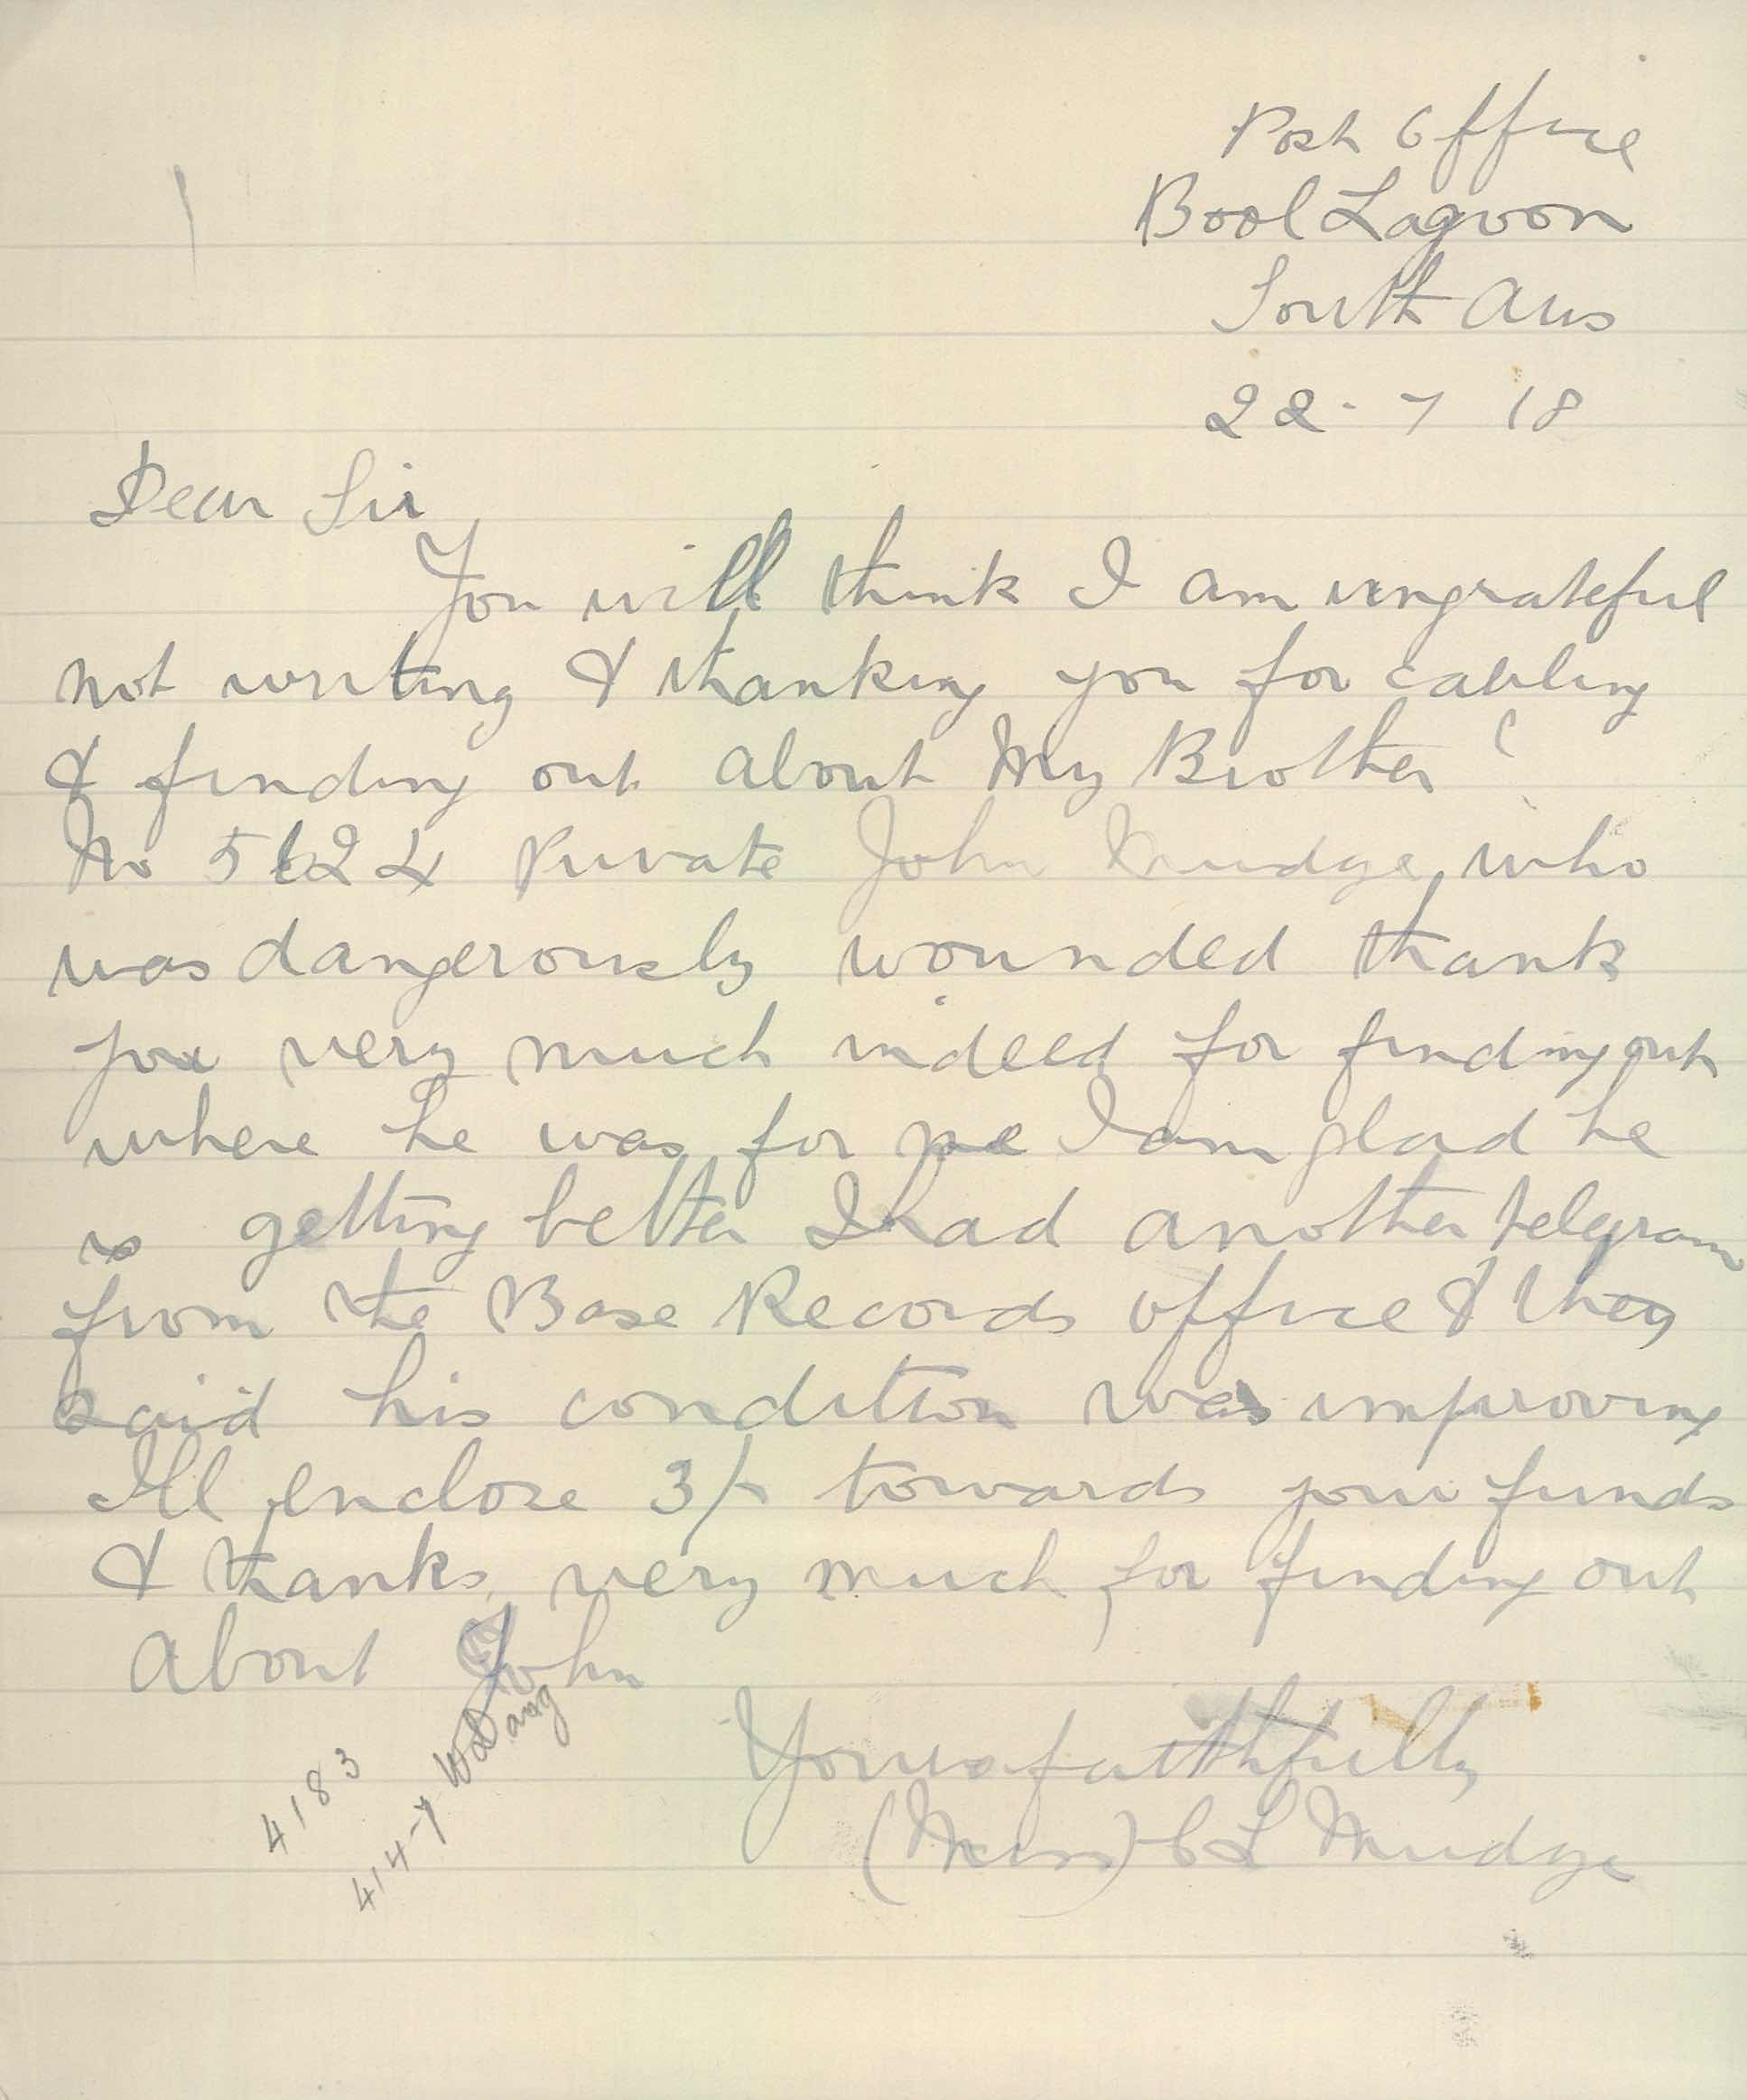 Post Office
Bool Lagoon
South Aus
22-7 18
Dear Sir
You will think I am ungrateful
not writing & thanking you for cabling
& finding out about my Brother
No 5624 Private John Mudge, who
was dangerously wounded thank
you very much indeed for finding out
where he was for me I am glad he
is getting better I had another telegram
from the Base Records office & they
said his condition was improving
Ill enclose 3/- towards your funds
& thanks very much for finding out
about John
Yours faithfully
(Miss) E L Mudge
4183
414-7